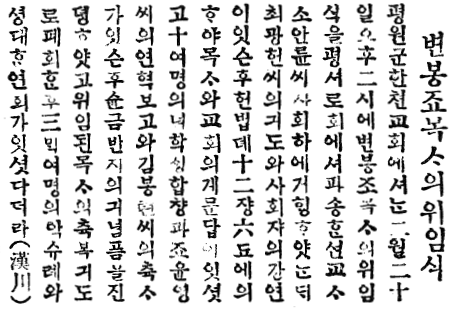 변봉죠목ᄉᆞ의위임식
평원군한천교회에셔ᄂᆞᆫ二월二十
일오후二시에변봉조목ᄉᆞ의위임
식을평셔로회에셔파송ᄒᆞᆫ션교ᄉᆞ
소안륜씨샤회하에거ᄒᆡᆼᄒᆞ얏ᄂᆞᆫᄃᆡ
최광헌씨의긔도와사회쟈의간연
이잇슨후헌법뎨十二쟝六됴에의
ᄒᆞ야목ᄉᆞ와교회의계문답이잇셧
고十여명의녀학ᄉᆡᆼ합챵과죠윤영
씨의연혁보고와김봉현씨의축ᄉᆞ
가잇슨후슌금반지의긔념품을진
뎡ᄒᆞ얏고위임된목ᄉᆞ의축복긔도
로폐회ᄒᆞᆫ후三ᄇᆡᆨ여명의악슈례와
셩대ᄒᆞᆫ연회가잇셧다더라(漢川)